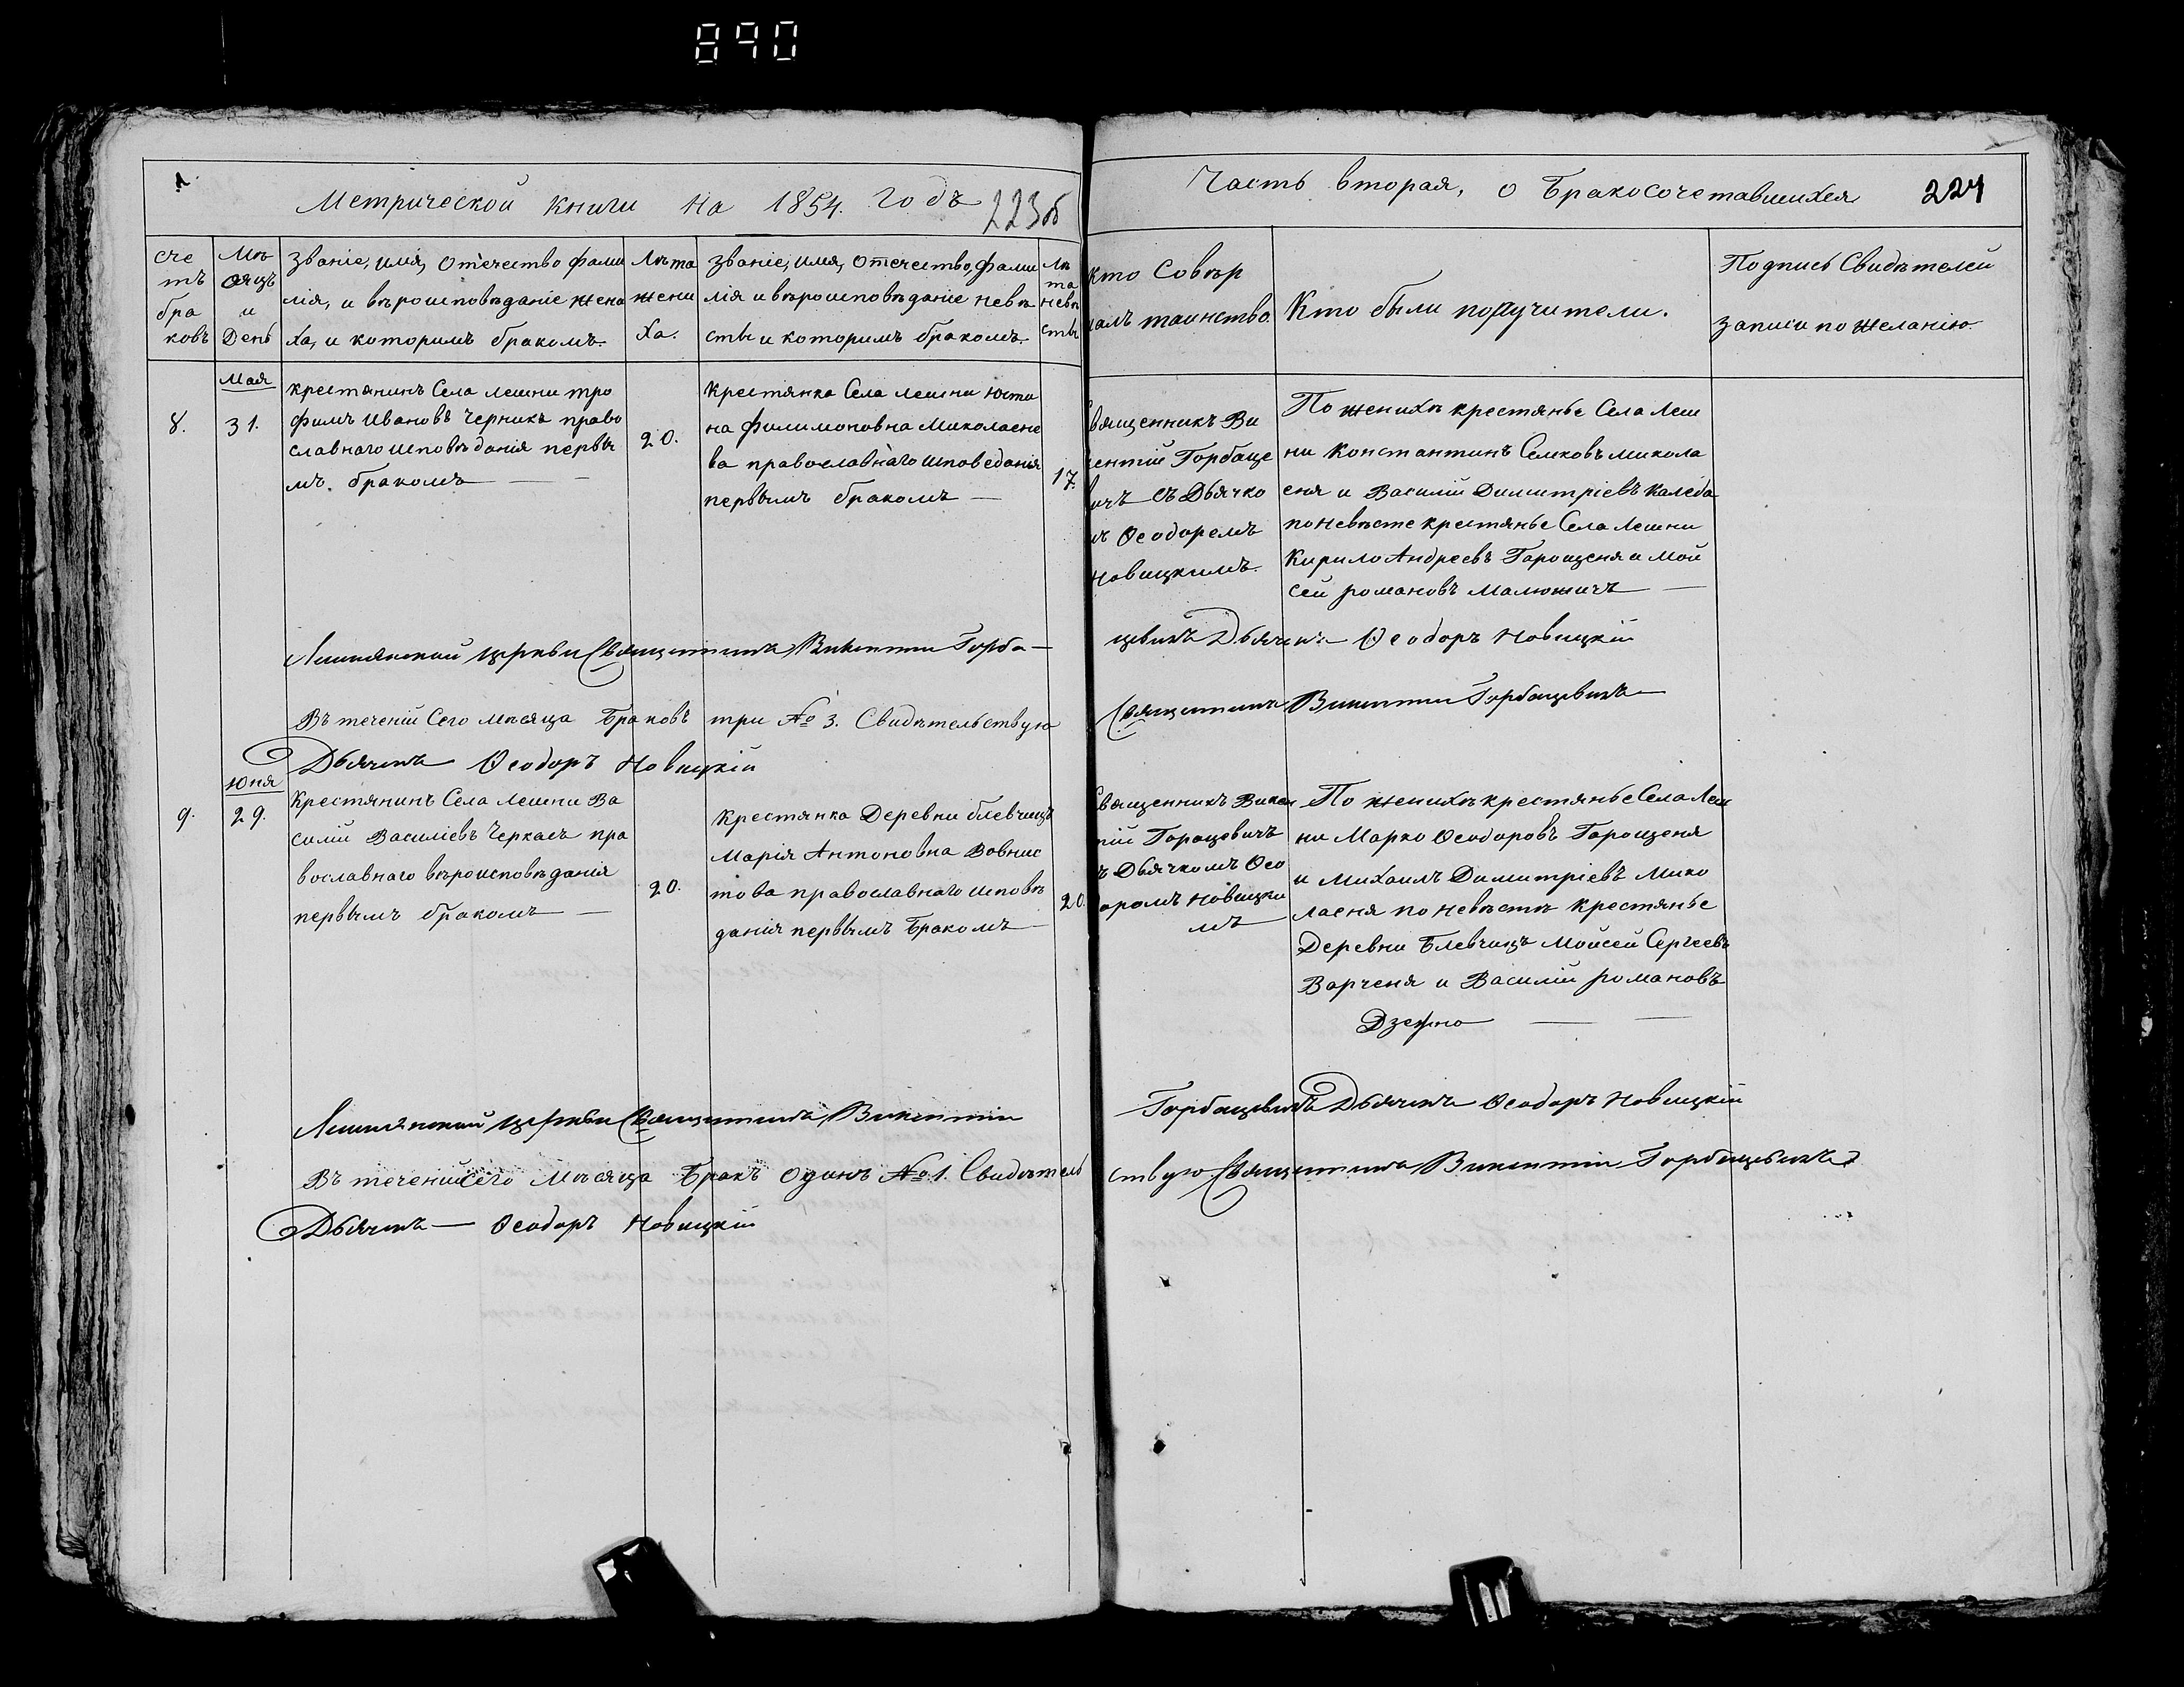 890
Метрической книги на 1854. годъ 223об
Часть вторая, о бракосочетавшихся 224
сче
тъ
бра
ковъ
Мѣ
сяцъ
и
День
Званіе, имя, Отечество фами
лія, и вѣроисповѣданіе жени
ха, и которимъ бракомъ.
Лѣта
жени
ха.
Званіе, имя, Отечество, фами
лія и вѣроисповѣданіе невѣ
сты и которимъ бракомъ.
Лѣ
та
невѣ
сты
кто Совѣр
шалъ таинство.
Кто были поручители.
Подпись Свидѣтелей
записи по желанію.
Мая
8.
31.
крестянинъ Села лешни тро
фимъ Ивановъ Черникъ право
славнаго исповѣданія первы
мъ. бракомъ
20.
Крестянка Села лешни Юсти
на филимоновна Миколаене
ва православнаго исповеданія
первымъ бракомъ
17.
Священникъ Ви
кентій Горбаце
вичъ съ Дьячко
мъ Ѳеодоремъ
Новицкимъ.
По женихѣ крестянье Села Леш
ни Константинъ Семковъ микола
еня и Василій Димитріевъ Каледа
по невѣсте крестянье Села лешни
Кирило Андреевъ Горощеня и Мои
сей романовъ Малюжичъ
Лешнянской церкви Священникъ Викентій Горба-
цевичъ Дьячекъ Ѳеодоръ Новицкій
Въ теченіи Сего мѣсяца Браковъ три № 3. Свидѣтельствую
Священникъ Викентій Горбацевичъ
Дьячекъ Ѳеодоръ Новицкій
Юня
9.
29.
Крестянинъ Села лешни Ва
силій Василіевъ Черкасъ пра
вославнаго вѣроисповѣданія
первымъ бракомъ
20.
Крестянка Деревни блевчицъ
Марія Антоновна Вовчис
това православнаго исповѣ
данія первымъ Бракомъ
20.
Священникъ Викен
тій Горацевичъ
съ Дьячкомъ Ѳео
доромъ Новицки
мъ
По женихѣ крестянье Села Леш
ни Марко Ѳеодоровъ Горощеня
и Михаилъ Димитріевъ Мико
лаеня по невѣстѣ крестянье
Деревни Блевчицъ Мойсей Сергеевъ
Варченя и Василій романовъ
Лешнянской церкви Священникъ Викентій
Горбацевичъ Дьячекъ Ѳеодоръ Новицкій
Въ теченіи сего Мѣсяца Бракъ Одинъ № 1. Свидѣтель
ствую Священникъ Викентій Горбацевичъ
Дьячекъ Ѳеодоръ Новицкій